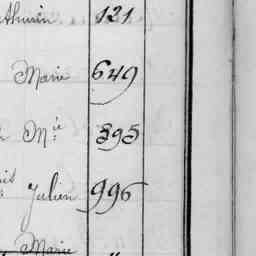 athurin 121
Marie 649
Mie 395
Julien 996
Marie "